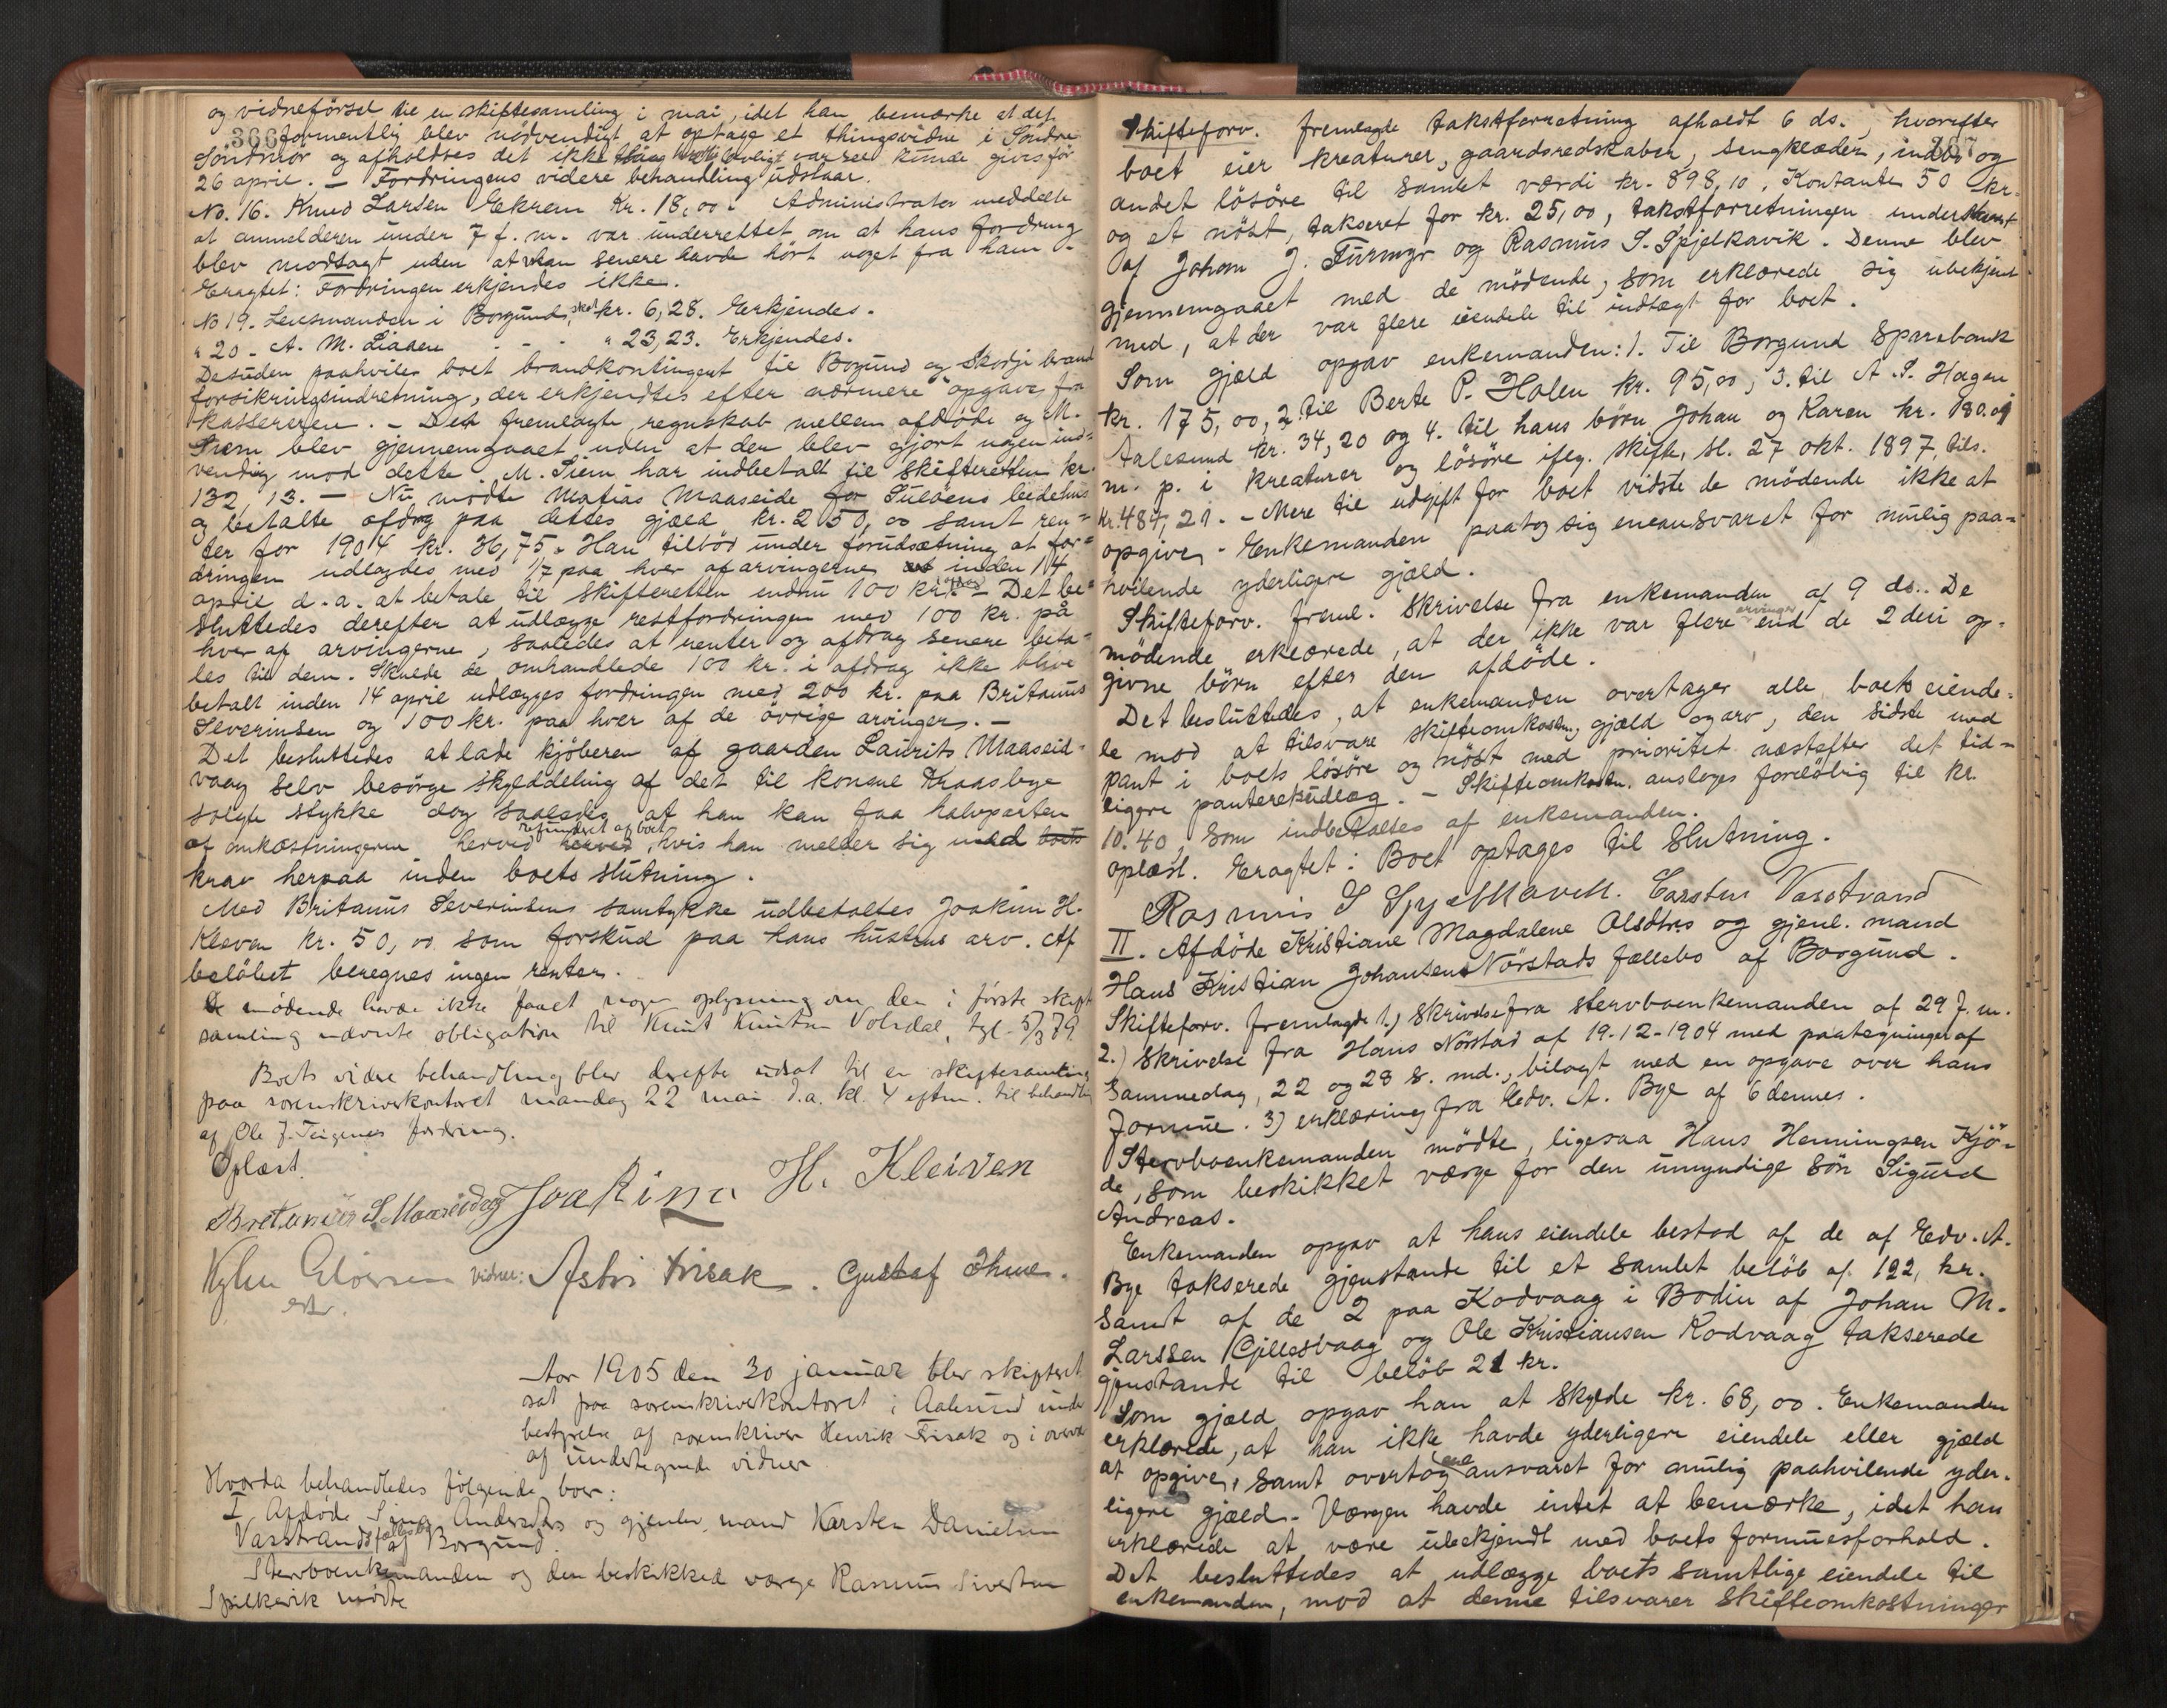 og vidneførsel til en skiftesamling i mai, idet han bemærke at det
366 formentlig blev nødvendigt at optage et thingsvidne i Søndre
Søndmør og afholdtes det ikke thing lovligt varsel kunde gives før
26 april. – Fordringens videre behandling udstaar.
No. 16. Knud Larsen Ekrem Kr. 18,00. Administrator meddelte
at anmelderen under 7 f. m. var underrettet om at hans fordring
blev modsagt uden at man senere havde hørt noget fra ham.
Eragtet: Fordringen erkjendes ikke.
No 19. Lensmanden i Borgund, skat kr. 6,28. Erkjendes.
" 20 - A. M. Liaaen - - - " 23,23. Erkjendes.
Desuden paahviler boet brandkontingent til Borgund og Skodje brand
forsikringsindretning, der erkjendtes efter nærmere opgave fra
kassereren. – Det fremlagte regnskab mellem afdøde og M.
Siem blev gjennemgaaet uden at der blev gjort nogen ind=
vending mod dette. M. Siem har indbetalt til skifteretten kr.
132,13. – Nu mødte Matias Maaseide for Suløens bedehus
og betalte afdrag paa dettes gjæld kr. 250,00 samt ren=
ter for 1904 kr. 36,75. Han tilbød under forudsætning at for=
dringen udlægdes med 1/7 paa hver af arvingerne inden 14
april d. a. at betale til skifteretten endnu 100 kr. – Det be=
sluttedes derefter at udlægge restfordringen med 100 kr. på
hver af arvingerne, saaledes at renter og afdrag senere beta=
les til dem. Skulde de omhandlede 100 kr. i afdrag ikke blive
betalt inden 14 april udlægges fordringen med 200 kr. paa Britanus
Severinsen og 100 kr. paa hver af de øvrige arvinger. –
Det besluttedes at lade kjøberen af gaarden Laurits Maaseid=
vaag selv besørge skylddeling af det til konsul Kraasbye
solgte stykke dog saaledes at han kan faa halvparten
af omkostningerne herved refunderet af boet, hvis han melder sig med
krav herpaa inden boets slutning.
Med Britanus Severinsens samtykke udbetaltes Joakim H.
Kleven kr. 50,00 som forskud paa hans hustrus arv. Af
beløbet beregnes ingen renter.
De mødende havde ikke faaet nogen oplysning om den i første skifte
samling nævnte obligation til Knut Knutsen Volsdal, tgl. 5/3 79.
Boets videre behandling blev derefter udsat til en skiftesamling
paa sorenskriverkontoret mandag 22 mai d.a. kl. 4 eftm. til behandling
af Ole J. Teigenes fordring.
Oplæst.
Bretanius S Maaseidvag Joakim H. Kleiven
vidner: Astri Frisak. Gustaf Thue.
Aar 1905 den 30 januar blev skifteret
sat paa sorenskriverkontoret i Aalesund under
bestyrelse af sorenskriver Henrik Frisak og i overvær
af undertegnede vidner
Hvorda behandledes følgende boer:
I Afdøde Andersdtrs og gjenlev. mand Karsten Danielsen
Vasstrands fællesbo af Borgund.
Stervboenkemanden og den beskikkede værge Rasmus Sivertsen
Spilkevik mødte
Skifteforv. fremlagde takstforretning afholdt 6 ds., hvorefter
boet eier kreaturer, gaardsredskaber, sengklæder, indbo og
andet løsøre til samlet værdi kr. 898,10, Kontanter 50 kr.
og et nøst, takseret for kr. 25,00, takstforretningen underskrevet
af Johan J. Furmyr og Rasmus S. Spjelkavik. Denne blev
gjennemgaaet med de mødende, som erklærede sig ubekjent
med, at der var flere eiendele til indtægt for boet.
Som gjæld opgav enkemanden: 1. Til Borgund Sparebank
kr. 175,00, 2. til Berte P. Holen kr. 95,00, 3. til A. S. Hagen
Aalesund kr. 34,20 og 4. til hans børn Johan og Karen kr. 180.01
m. p. i kreaturer og løsøre ifølg. skifte, sl. 27 okt. 1897, tils.
kr. 484,21. – Mere til udgift for boet vidste de mødende ikke at
opgive. – Enkemanden paatog sig eneansvaret for mulig paa=
hvilende yderligere gjæld.
Skifteforv. freml. skrivelse fra enkemanden af 9 ds.. De
mødende erklærede, at der ikke var flere arvinger end de 2 deri op=
givne børn efter den afdøde.
Det besluttedes, at enkemanden overtager alle boets eiende=
le mod at tilsvare skifteomkostn., gjæld og arv, den sidste med
pant i boets løsøre og nøst med prioritet næstefter det tid=
ligere panteretsudlæg. – Skifteomkostn. ansloges foreløbig til kr.
10.40, som indbetaltes af enkemanden.
oplæst. Eragtet: Boet optages til slutning.
Rasmus S Spjelkavik. Carsten Vasstrand
II. Afdøde Kristiane Magdalene Olsdtrs og gjenl. mand
Hans Kristian Johansens Nörstads fællesbo af Borgund.
Skifteforv. fremlagde 1.) skrivelse fra stervboenkemanden af 29 f. m.
2.) skrivelse fra Hans Nörstad af 19-12-1904 med paategninger af
sammedag, 22 og 28 s. md., bilagt med en opgave over hans
formue. 3) erklæring fra Edv. A. Bye af 6 dennes.
Stervboenkemanden mødte, ligesaa Hans Henningsen Kjø=
de, som beskikket værge for den umyndige søn Sigurd
Andreas.
Enkemanden opgav at hans eiendele bestod af de af Edv. A.
Bye takserede gjenstande til et samlet beløb af 122, kr.
samt af de 2 paa Kodvaag i Bodin af Johan M.
Larssen Gjillesvaag og Ole Kristiansen Kodvaag takserede
gjenstande til beløb 21 kr.
Som gjæld opgav han at skylde kr. 68,00. Enkemanden
erklærede, at han ikke havde yderligere eiendele eller gjæld
at opgive, samt overtog eneansvaret for mulig paahvilende yder=
ligere gjæld. Værgen havde intet at bemærke, idet han
erklærede at være ubekjendt med boets formuesforhold.
Det besluttedes at udlægge boets samtlige eiendele til
enkemanden, mod at denne tilsvarer skifteomkostninger